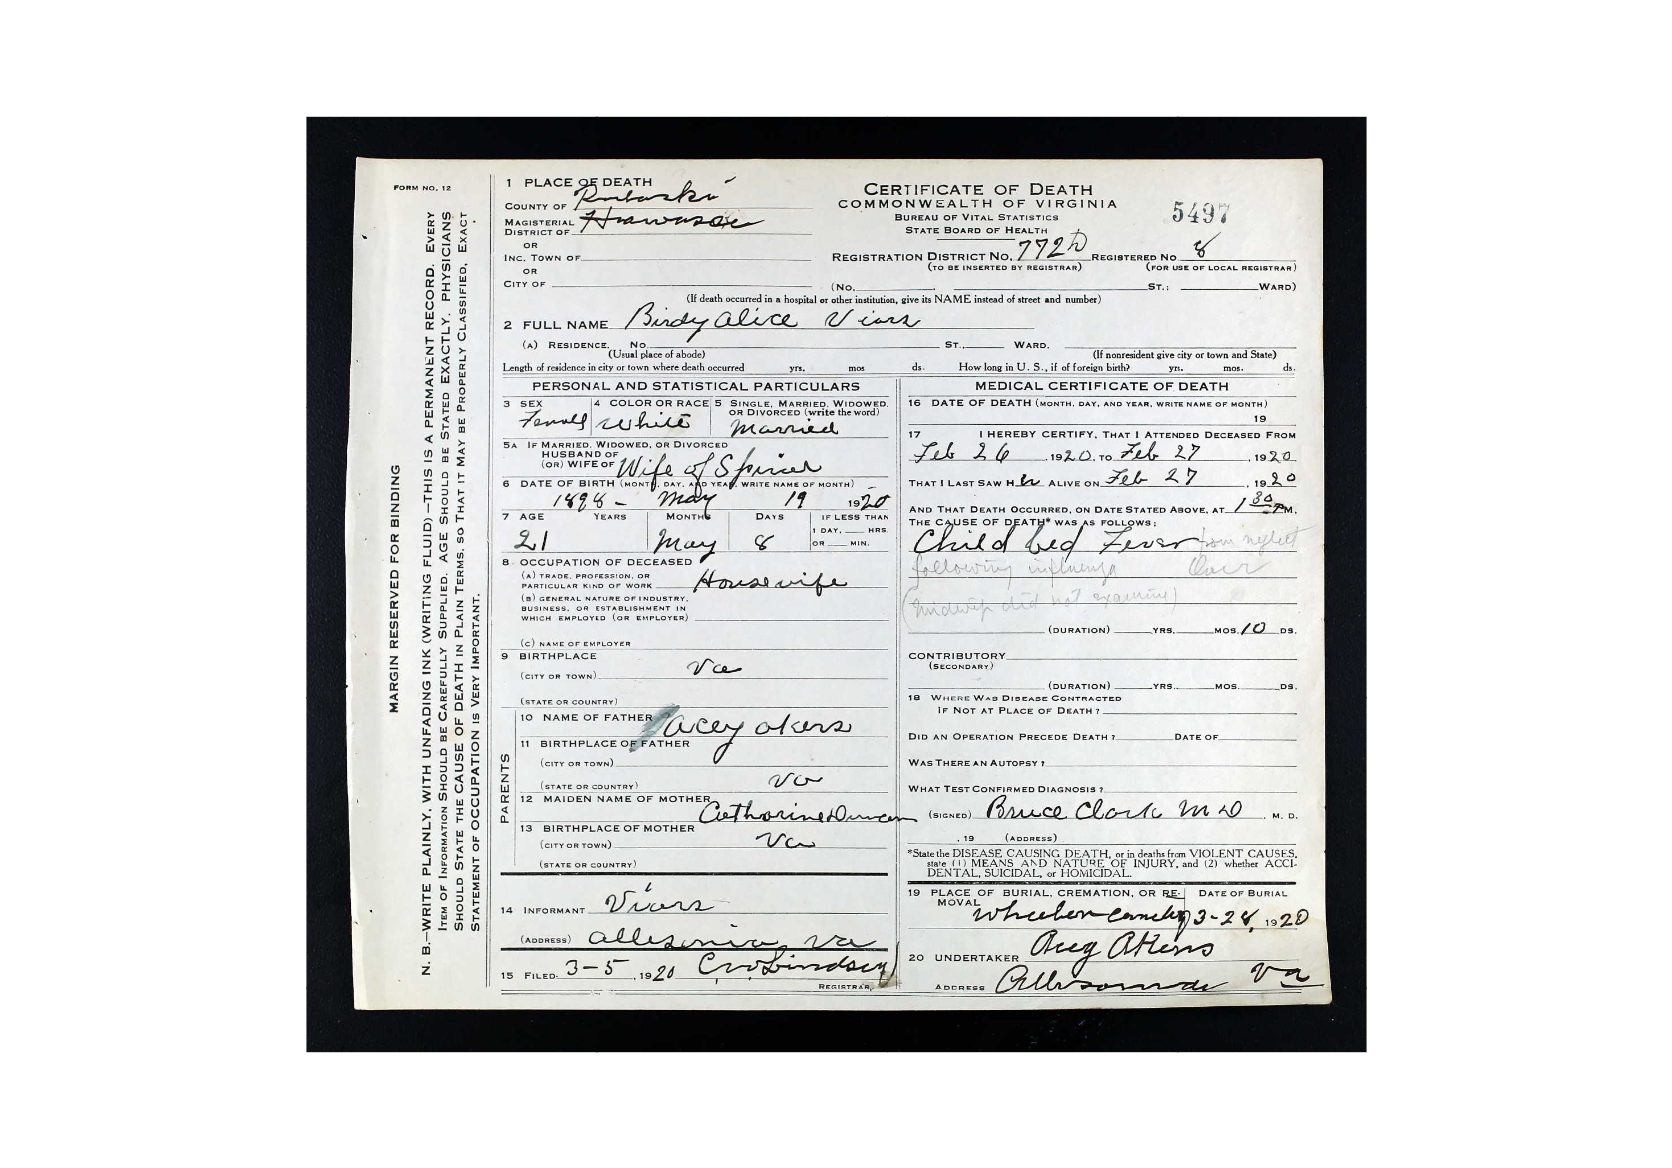 FORM NO. 12
MARGIN RESERVED FOR BINDING
N. B.—WRITE PLAINLY, WITH UNFADING INK (WRITING FLUID)—THIS IS A PERMANENT RECORD. EVERY
ITEM OF INFORMATION SHOULD BE CAREFULLY SUPPLIED. AGE SHOULD BE STATED EXACTLY. PHYSICIANS
SHOULD STATE THE CAUSE OF DEATH IN PLAIN TERMS, SO THAT IT MAY BE PROPERLY CLASSIFIED. EXACT
STATEMENT OF OCCUPATION IS VERY IMPORTANT.
1 PLACE OF DEATH
COUNTY OF Pulaski
MAGISTERIAL
DISTRICT OF Hiwassee
OR
INC. TOWN OF
OR
CITY OF
CERTIFICATE OF DEATH
COMMONWEALTH OF VIRGINIA
BUREAU OF VITAL STATISTICS
STATE BOARD OF HEALTH
5497
REGISTRATION DISTRICT NO. 772D REGISTERED NO 8
(TO BE INSERTED BY REGISTRAR) (FOR USE OF LOCAL REGISTRAR)
(NO. , ST.; WARD)
(If death occurred in a hospital or other institution, give its NAME instead of street and number)
2 FULL NAME Birdy Alice Viars
(A) RESIDENCE. NO. ST., WARD.
(Usual place of abode) (If nonresident give city or town and State)
Length of residence in city or town where death occurred yrs. mos ds. How long in U. S., if of foreign birth? yrs. mos. ds.
PERSONAL AND STATISTICAL PARTICULARS
3 SEX 4 COLOR OR RACE 5 SINGLE, MARRIED, WIDOWED,
OR DIVORCED (write the word)
Female White Married
5A IF MARRIED, WIDOWED, OR DIVORCED
HUSBAND OF
(OR) WIFE OF Wife of
6 DATE OF BIRTH (MONTH, DAY, AND YEAR, WRITE NAME OF MONTH)
1898 – May 19 1920
7 AGE YEARS MONTHS DAYS IF LESS THAN
1 DAY, HRS.
OR MIN.
21 May 8
8 OCCUPATION OF DECEASED
(A) TRADE, PROFESSION, OR
PARTICULAR KIND OF WORK Housewife
(B) GENERAL NATURE OF INDUSTRY,
BUSINESS, OR ESTABLISHMENT IN
WHICH EMPLOYED (OR EMPLOYER)
(C) NAME OF EMPLOYER
9 BIRTHPLACE
(CITY OR TOWN) Va
(STATE OR COUNTRY)
PARENTS
10 NAME OF FATHER Acey Akers
11 BIRTHPLACE OF FATHER
(CITY OR TOWN)
(STATE OR COUNTRY) Va
12 MAIDEN NAME OF MOTHER Catharine Duncan
13 BIRTHPLACE OF MOTHER
(CITY OR TOWN) Va
(STATE OR COUNTRY)
14 INFORMANT Viars
(ADDRESS) Allisonia Va
15 FILED. 3–5, 1920 C W Lindsey
REGISTRAR.
MEDICAL CERTIFICATE OF DEATH
16 DATE OF DEATH (MONTH, DAY, AND YEAR, WRITE NAME OF MONTH)
19
17 I HEREBY CERTIFY, THAT I ATTENDED DECEASED FROM
Feb 26, 1920, TO Feb 27, 1920
THAT I LAST SAW Her ALIVE ON Feb 27, 1920
AND THAT DEATH OCCURRED, ON DATE STATED ABOVE, AT 1 30 PM.
THE CAUSE OF DEATH* WAS AS FOLLOWS:
Child bed Fever from neglect
following influenza
(Midwife did not examine)
(DURATION) YRS. MOS. 10 DS.
CONTRIBUTORY
(SECONDARY)
(DURATION) YRS. MOS. DS.
18 WHERE WAS DISEASE CONTRACTED
IF NOT AT PLACE OF DEATH?
DID AN OPERATION PRECEDE DEATH? DATE OF
WAS THERE AN AUTOPSY?
WHAT TEST CONFIRMED DIAGNOSIS?
(SIGNED) Bruce Clark M D, M. D.
, 19 (ADDRESS)
*State the DISEASE CAUSING DEATH, or in deaths from VIOLENT CAUSES,
state (1) MEANS AND NATURE OF INJURY, and (2) whether ACCI-
DENTAL, SUICIDAL, or HOMICIDAL.
19 PLACE OF BURIAL, CREMATION, OR RE- DATE OF BURIAL
MOVAL
Wheeler Cemetery 3-28, 1920
20 UNDERTAKER Akers
ADDRESS Allisonia Va